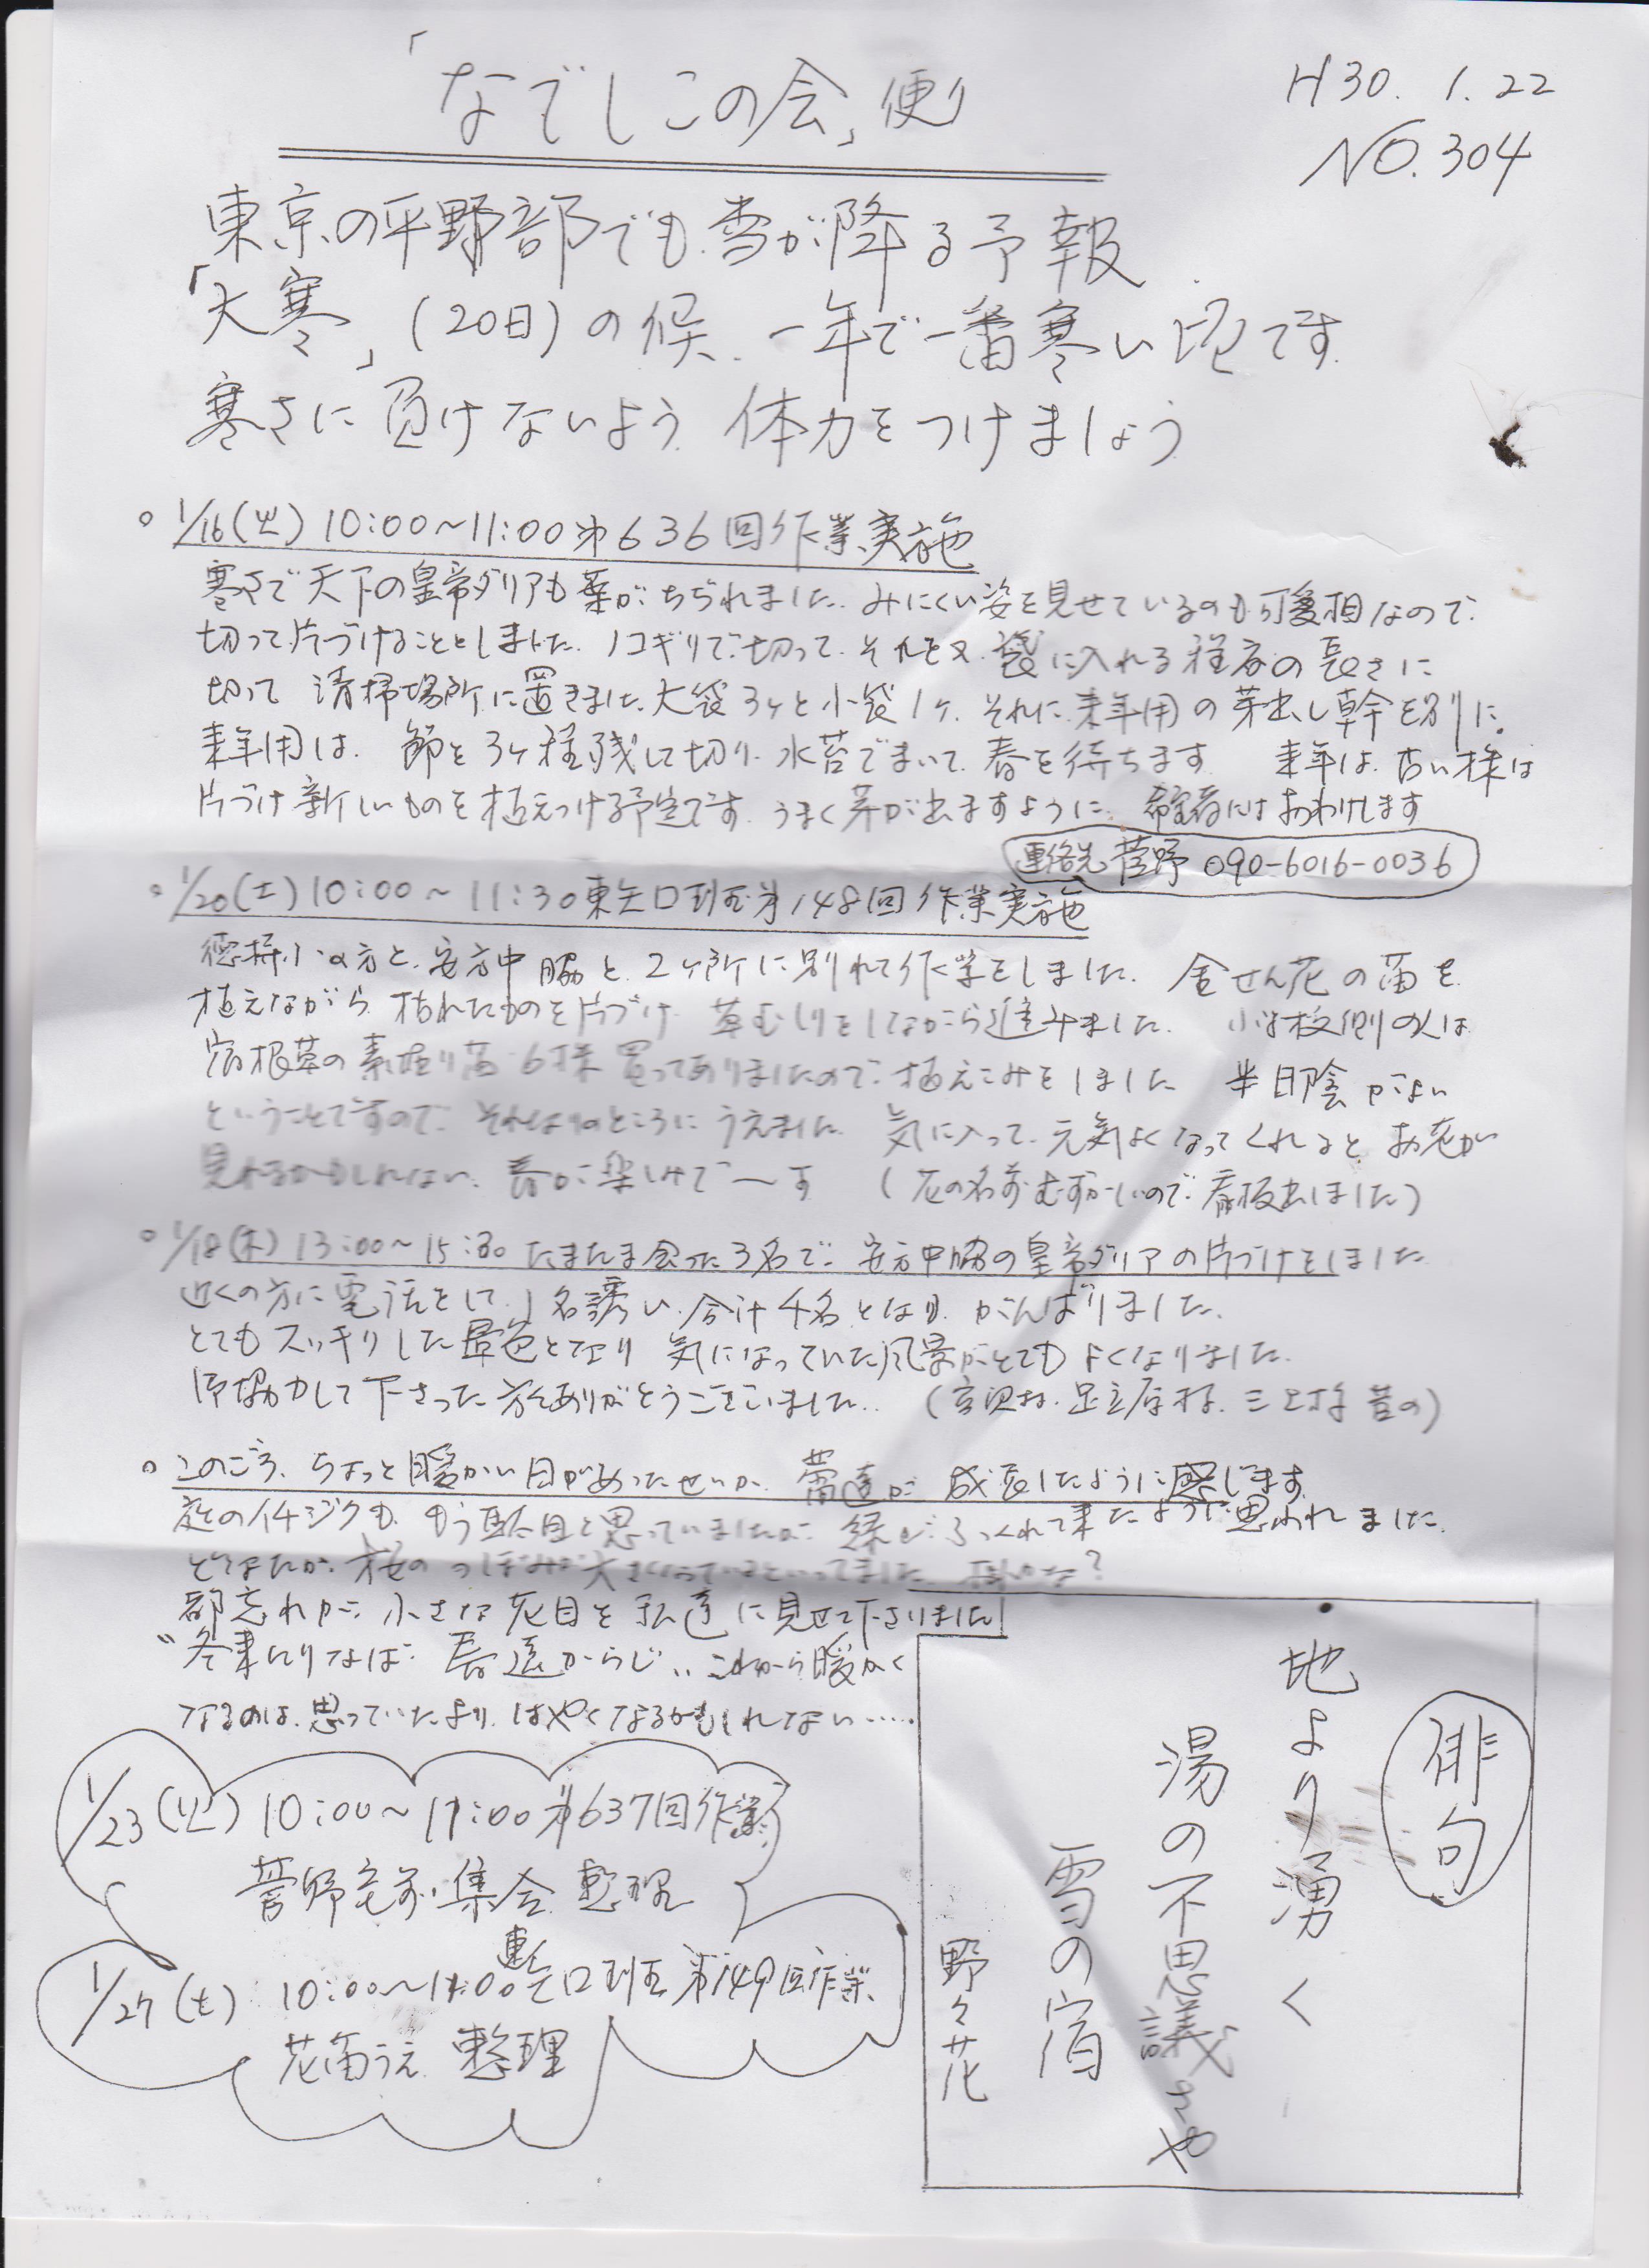 「なでしこの会」便り
H30. 1. 22
NO. 304
東京の平野部でも雪が降る予報
「大寒」(20日)の候、一年で一番寒い頃です
寒さに負けないよう 体力をつけましょう
。1/16(火) 10:00~11:00 第636回作業実施
寒さで天下の皇帝ダリアも葉がちぢれました。みにくい姿を見せているのも可哀相なので
切って片づけることとしました。ノコギリで切って、それを又、袋に入れる程度の長さに
切って 清掃場所に置きました。大袋3ヶと小袋1ヶ、それに来年用の芽出し幹を別に。
来年用は、節を3ヶ程残して切り、水苔でまいて、春を待ちます 来年は、古い株は
片づけ 新しいものを植えつける予定です。うまく芽が出ますように、希望者にはおわけします
連絡先 菅野 090-6016-0036
。1/20(土) 10:00~11:30 東矢口班第148回作業実施
徳持小の方と、安方中脇と、2ヶ所に別れて作業をしました。金せん花の苗を
植えながら、枯れたものを片づけ、草むしりをしながら進みました。小学校側の人は
宿根草の素掘り苗 6株 買ってありましたので、植えこみをしました 半日陰がよい
ということですので、それなりのところにうえました。気に入って、元気よくなってくれると、お花が
見れるかもしれない、春が楽しみで〜す (花の名前むずかしいので、看板出しました)
。1/18(木) 13:00~15:30 たまたま会った3名で、安方中脇の皇帝ダリアの片づけをしました
近くの方に電話をして、1名誘い、合計4名となり、がんばりました。
とてもスッキリした景色となり 気になっていた風景がとてもよくなりました。
御協力して下さった方々ありがとうございました。(宮沢様、足立原様、三上様 昔の)
。このごろ、ちょっと暖かい日があったせいか、蕾達が 成長したように感じます
庭のイチジクも、もう駄目と思っていましたが、緑がふっくれて来たように思われました。
どなたか、桜のつぼみが大きくなっているといってました
都忘れが、小さな花目を私達に見せて下さりました
"冬来たりなば 春遠からじ" これから暖かく
なるのは、思っていたより、はやくなるかもしれない……
1/23(火) 10:00~11:00 第637回作業
菅野宅前 集合 整理
1/27(土) 10:00~11:00 東矢口班 第149回作業
花苗うえ 整理
俳句
地より湧く
湯の不思議さや
雪の宿
野々花